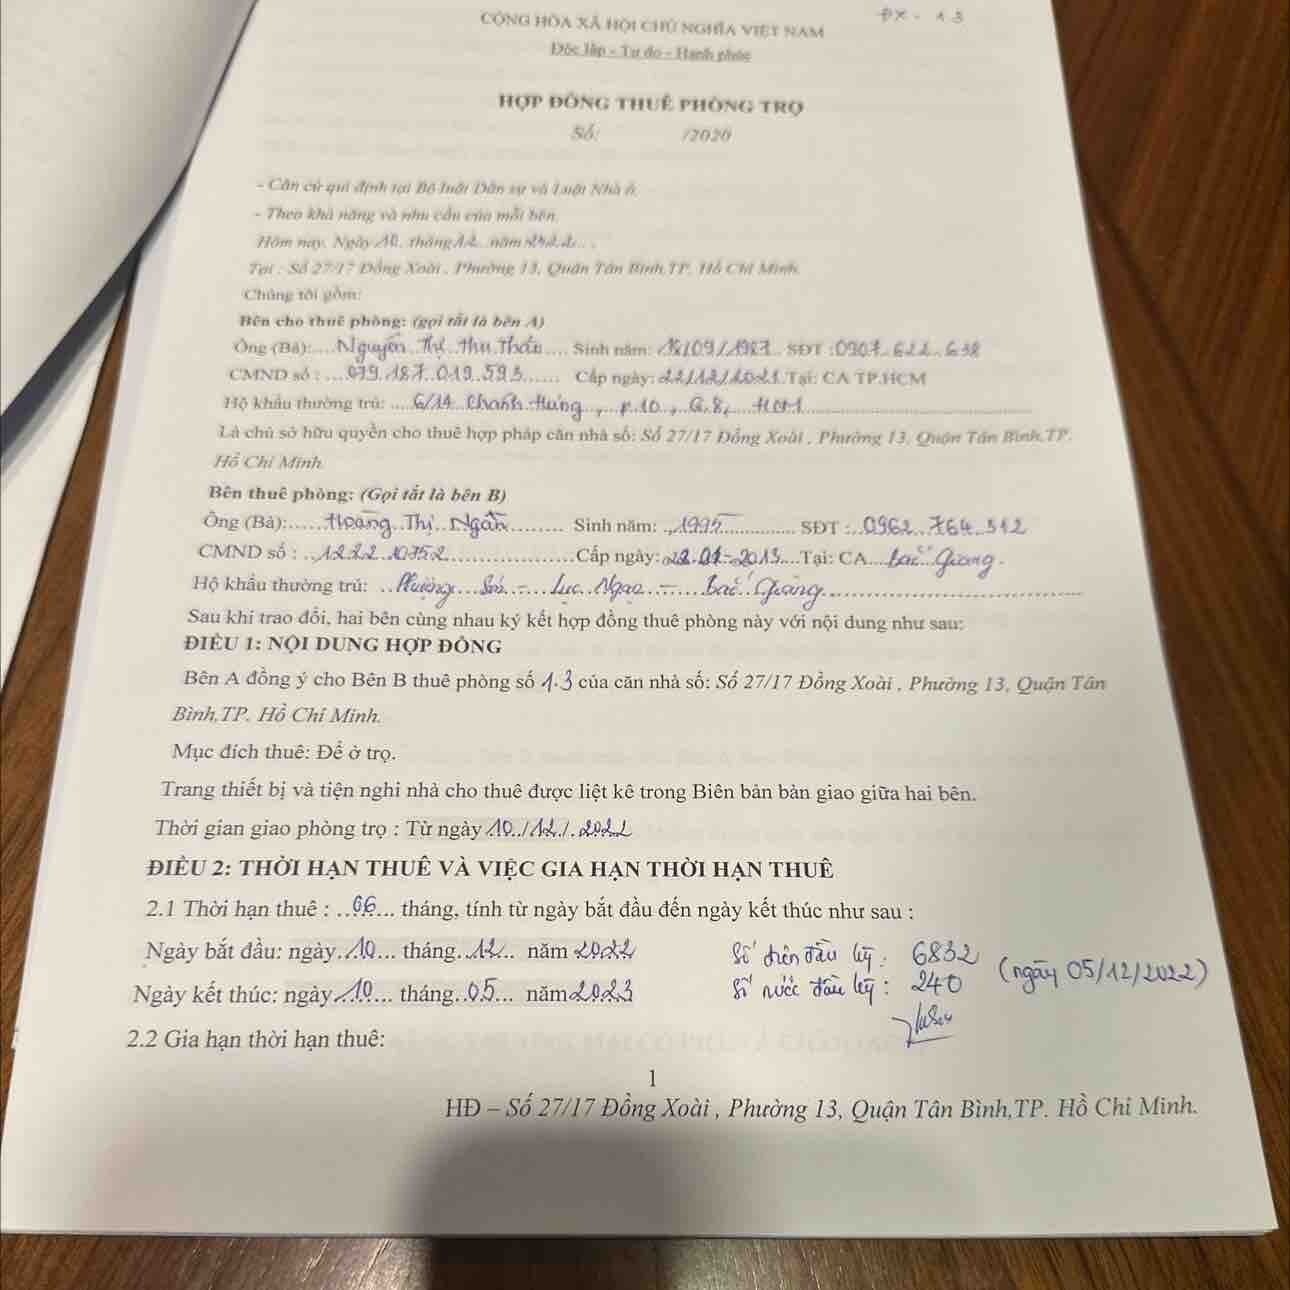 ĐX - 1.3
CỘNG HÒA XÃ HỘI CHỦ NGHĨA VIỆT NAM
Độc lập - Tự do - Hạnh phúc
HỢP ĐỒNG THUÊ PHÒNG TRỌ
Số: /2020
- Căn cứ qui định tại Bộ luật Dân sự và Luật Nhà ở.
- Theo khả năng và nhu cầu của mỗi bên.
Hôm nay, Ngày 10 tháng 12 năm 2022
Tại : Số 27/17 Đồng Xoài , Phường 13, Quận Tân Bình,TP. Hồ Chí Minh.
Chúng tôi gồm:
Bên cho thuê phòng: (gọi tắt là bên A)
Ông (Bà): Nguyễn Thị Thu Thảo Sinh năm: 18/09/1987 SĐT :0907 622 638
CMND số : 079 187 019 593 Cấp ngày: 22/12/2021 Tại: CA TP.HCM
Hộ khẩu thường trú: 6/14 Chánh Hưng, P.10, Q.8, HCM
Là chủ sở hữu quyền cho thuê hợp pháp căn nhà số: Số 27/17 Đồng Xoài , Phường 13, Quận Tân Bình,TP.
Hồ Chí Minh
Bên thuê phòng: (Gọi tắt là bên B)
Ông (Bà): Hoàng Thị Ngân Sinh năm: 1995 SĐT : 0962 764 312
CMND số : 122210752 Cấp ngày: 22-01-2013 Tại: CA Bắc Giang.
Hộ khẩu thường trú: Phượng Sơn - Lục Ngạn - Bắc Giang
Sau khi trao đổi, hai bên cùng nhau ký kết hợp đồng thuê phòng này với nội dung như sau:
ĐIỀU 1: NỘI DUNG HỢP ĐỒNG
Bên A đồng ý cho Bên B thuê phòng số 1.3 của căn nhà số: Số 27/17 Đồng Xoài , Phường 13, Quận Tân
Bình,TP. Hồ Chí Minh.
Mục đích thuê: Để ở trọ.
Trang thiết bị và tiện nghi nhà cho thuê được liệt kê trong Biên bản bàn giao giữa hai bên.
Thời gian giao phòng trọ : Từ ngày 10/12/2022
ĐIỀU 2: THỜI HẠN THUÊ VÀ VIỆC GIA HẠN THỜI HẠN THUÊ
2.1 Thời hạn thuê : 06 tháng, tính từ ngày bắt đầu đến ngày kết thúc như sau :
Ngày bắt đầu: ngày 10 tháng 12 năm 2022 Số điện đầu kỳ : 6832
Ngày kết thúc: ngày 10 tháng 05 năm 2023 Số nước đầu kỳ : 240 (ngày 05/12/2022)
2.2 Gia hạn thời hạn thuê:
1
HĐ – Số 27/17 Đồng Xoài , Phường 13, Quận Tân Bình,TP. Hồ Chí Minh.